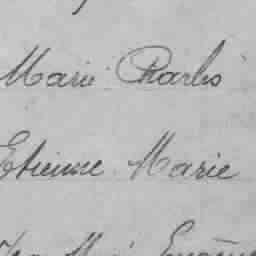 Marie Charles
Etienne Marie